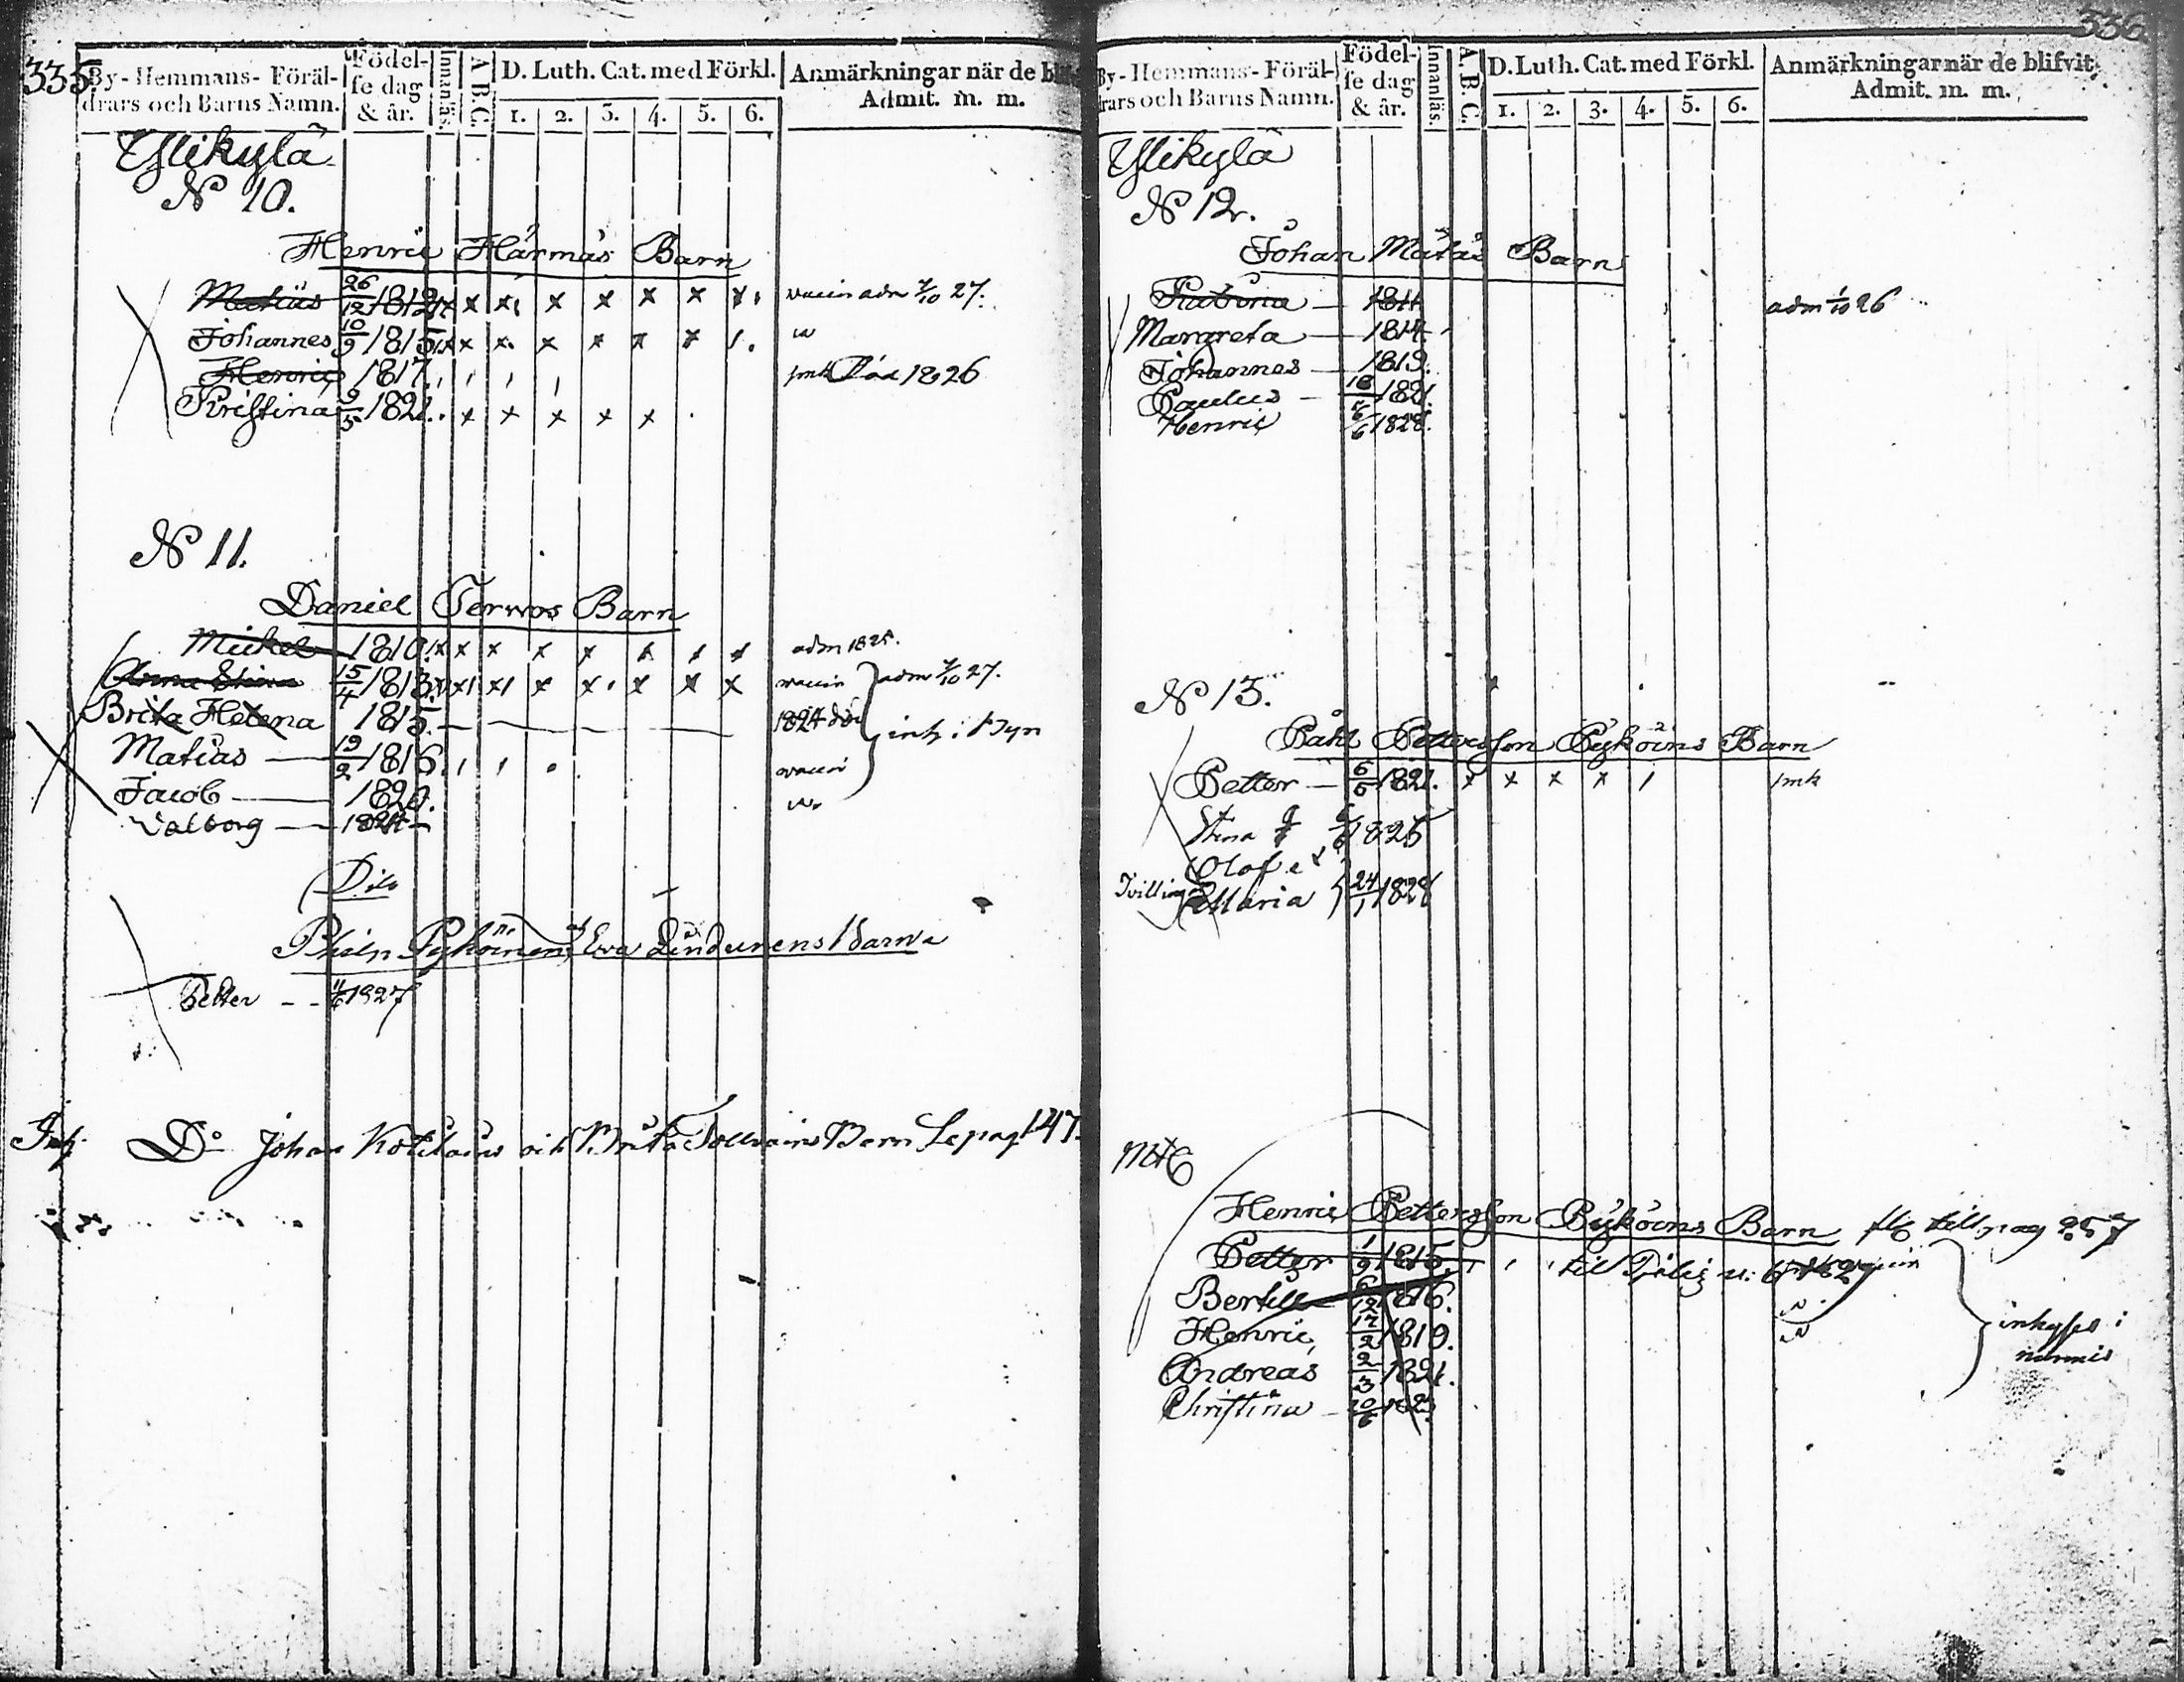 335.
By-Hemmans-Föräl-
drars och Barns Namn.
Födel-
se dag
& år.
Innanläs.
A B.C.
D. Luth. Cat. med Förkl.
1. 2. 3. 4. 5. 6.
Anmärkningar när de
Admit. m. m.
Ylikylä
N 10.
Henric Härmäs Barn
Matias 26/12 1812 x x x x x x x vaccin adm 7/10 27.
Johannes 10/9 1815 x x x x x x x
Henric 1817. Död 1826
Kristina 9/5 1821. x x x x x
N 11.
Daniel Terwos Barn
Mickel 1810. x x x x x adm 1825.
Anna Stina 15/4 1813. x x x x x x vaccin adm 7/10 27.
Brita Helena 1815. 1824 inh: Byn
Matias 19/2 1816. vaccin
Jacob 1820.
Valborg 1824
Dito
Philip Pyhöinens Eva Lindunens Barn
Petter 1827
Inh. Do Johan och Brita Barn Se pag 147.
336.
By-Hemmans-Föräl-
drars och Barns Namn.
Födel-
se dag
& år.
Innanläs.
A. B. C.
D. Luth. Cat. med Förkl.
1. 2. 3. 4. 5. 6.
Anmärkningar när de blifvit
Admit. m. m.
Ylikylä
N 12.
Johan Matas Barn
1811 adm 1/10 26
Margreta 1814.
Johannes 1819.
Paulus 1821.
Henric 6/6 1828.
N 13.
Påhl Pettersson Pyköins Barn
Petter 1821. x x x x
Stina 1825
Olof
Tvilling Maria 24/1 1828
Henric Pettersson Pyköins Barn till pag 257
Petter 1/9 1815. till
Bertill 6/12 1816.
Henric 17/2 1819. inhyses i
Andreas 2/3 1821.
Christina 10/6 1823